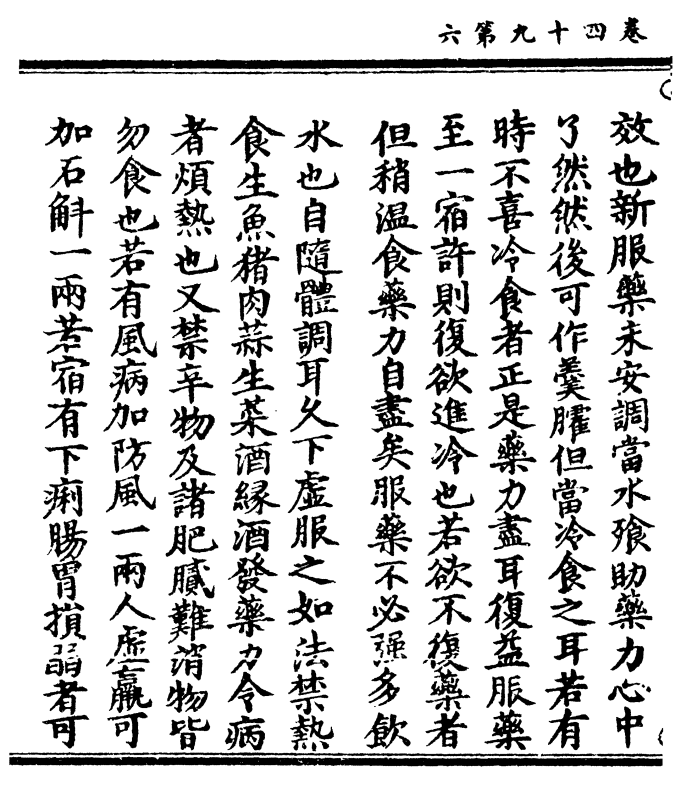 卷四十九第六
效也新服藥未安調當水飱助藥力心中
了然然後可作羹臛但當冷食之耳若有
時不喜冷食者正是藥力盡耳復益服藥
至一宿許則復欲進冷也若欲不復藥者
但稍温食藥力自盡矣服藥不必强多飲
水也自隨體調耳久下虛服之如法禁熱
食生魚猪肉蒜生菜酒緣酒發藥力令病
者煩熱也又禁辛物及諸肥膩難消物皆
勿食也若有風病加防風一兩人虛羸可
加石斛一兩若宿有下痢腸胃損弱者可